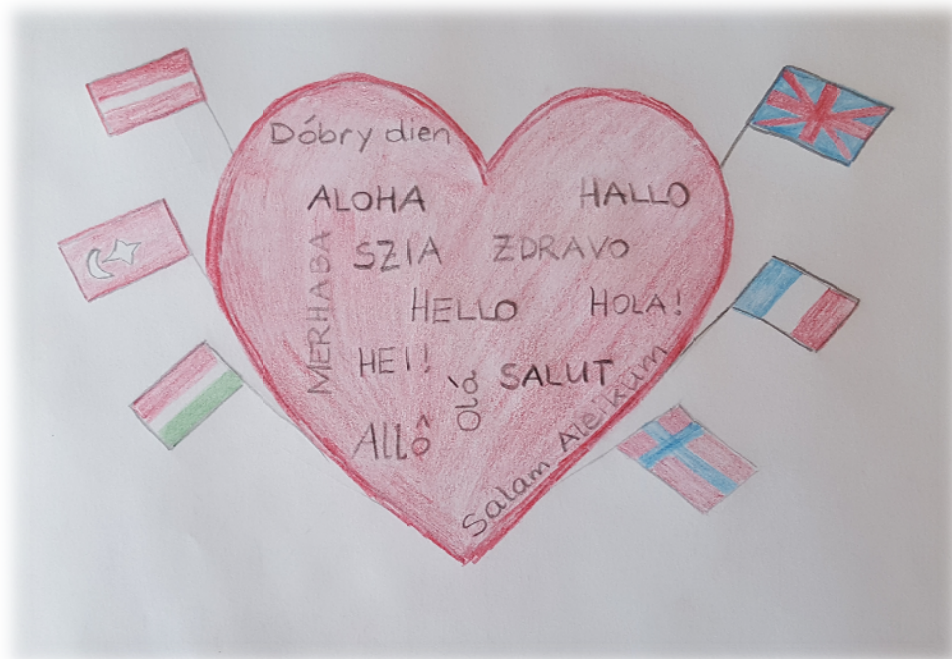 Dóbry dien
ALOHA
HALLO
MERHABA
SZIA
ZDRAVO
HELLO
HOLA!
HEI!
SALUT
Olà
Allô
Salam Aleikum